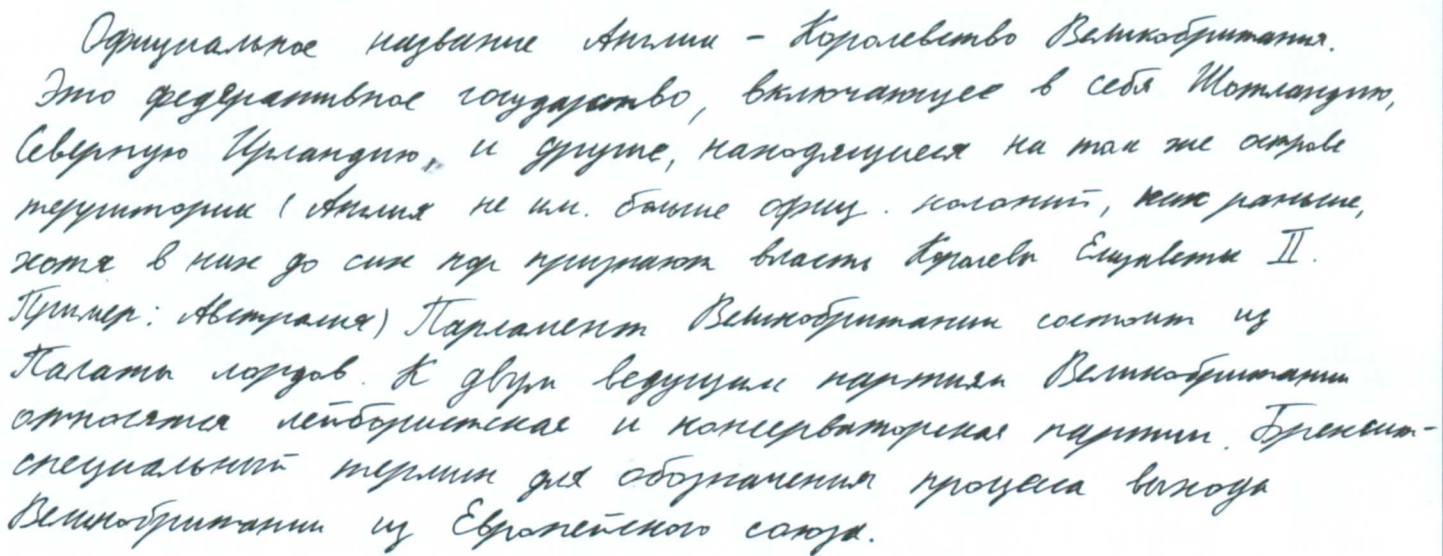 Официальное название Англии – Королевство Великобритания.
Это федеративное государство, включающее в себя Шотландию,
Северную Ирландию, и другие, находящиеся на том же острове
территории (Англия не им. больше офиц. колоний, как раньше,
хотя в них до сих пор признают власть Королевы Елизаветы II.
Пример: Австралия) Парламент Великобритании состоит из
Палаты лордов. К двум ведущим партиям Великобритании
относятся лейбористская и консерваторская партии. Брексит-
специальный термин для обозначения процесса выхода
Великобритании из Европейского союза.